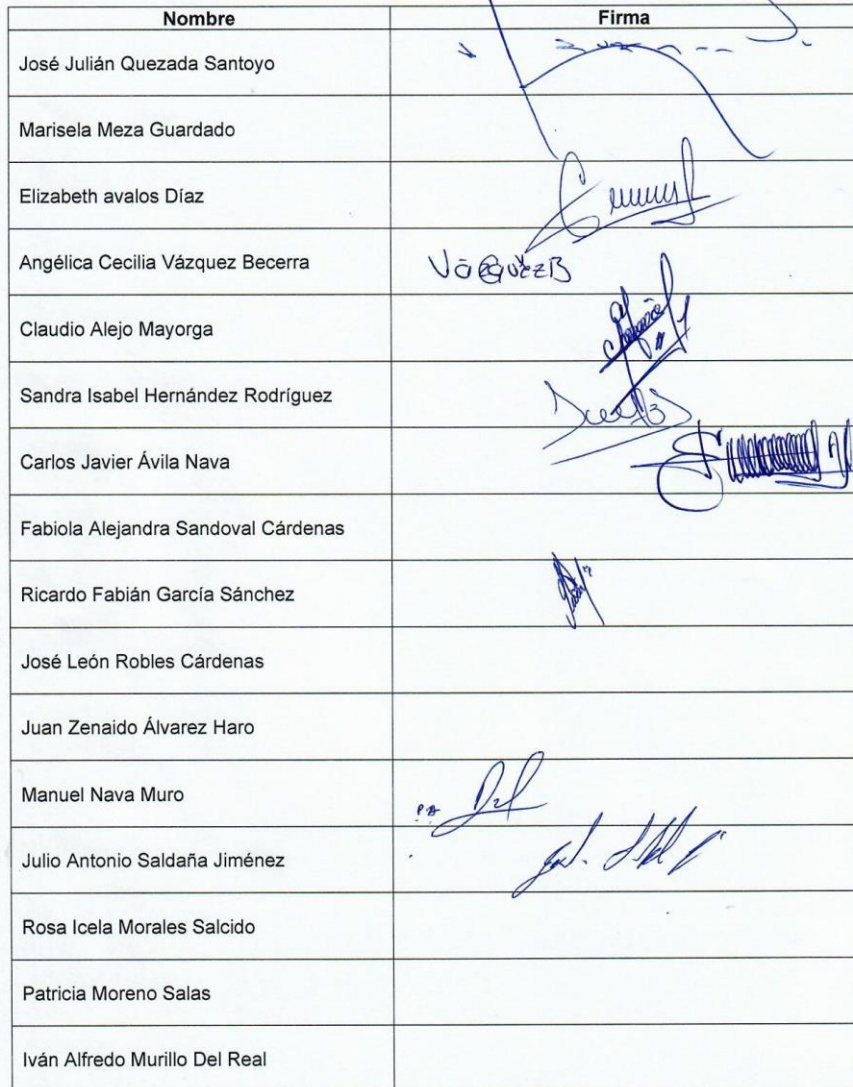 Nombre Firma
José Julián Quezada Santoyo
Marisela Meza Guardado
Elizabeth avalos Díaz
Angélica Cecilia Vázquez Becerra VázquezB
Claudio Alejo Mayorga
Sandra Isabel Hernández Rodríguez
Carlos Javier Ávila Nava
Fabiola Alejandra Sandoval Cárdenas
Ricardo Fabián García Sánchez
José León Robles Cárdenas
Juan Zenaido Álvarez Haro
Manuel Nava Muro
Julio Antonio Saldaña Jiménez
Rosa Icela Morales Salcido
Patricia Moreno Salas
Iván Alfredo Murillo Del Real